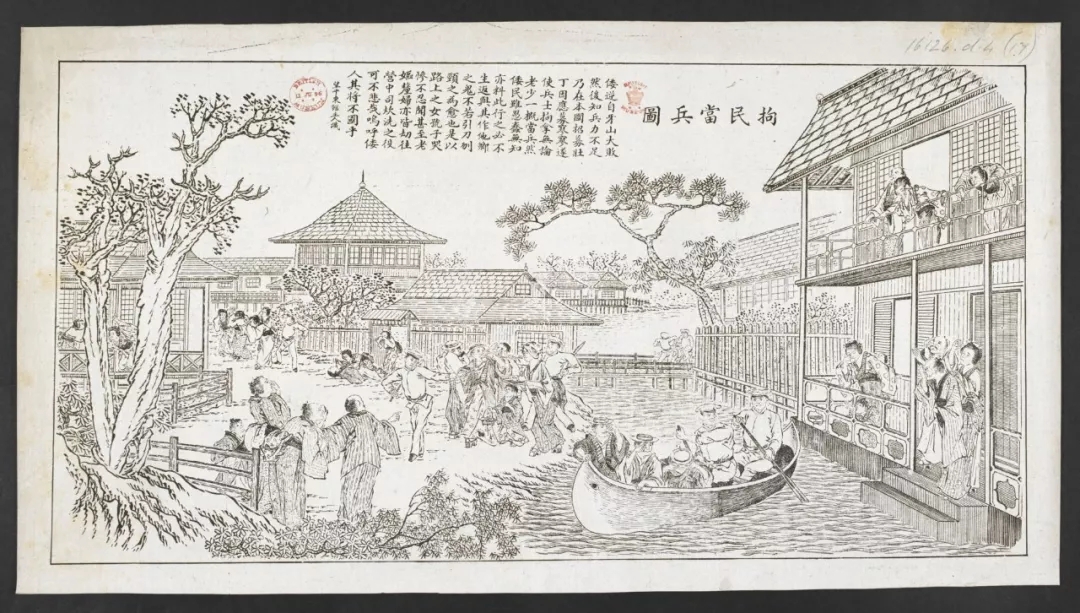 16126.d.4 (17)
拘民當兵圖
倭逆自牙山大敗
然後知兵力不足
乃在本國招募壯
丁因應募寥寥遂
使兵士拘拿無論
老少一概當兵然
倭民雖愚蠢無知
亦料此行之必不
生返與其作他鄉
之鬼不若引刀刎
頸之為愈也是以
路上之女號子哭
慘不忍聞甚至老
嫗嫠婦亦皆劫往
營中司炊洗之役
可不悲哉嗚呼倭
人其將不國乎